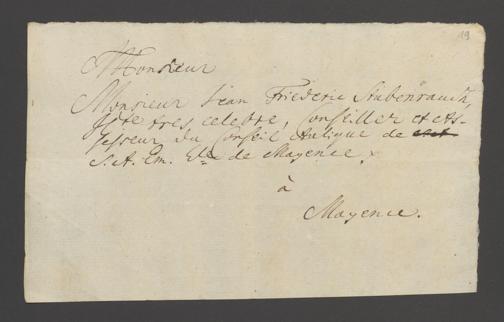 19
Monsieur
Monsieur Jean Friederic Stubenrauch
tres celebre, Conseiller et As-
sesseur du Conseil Aulique de
S. A. Em. Ele de Mayence.
à
Mayence.